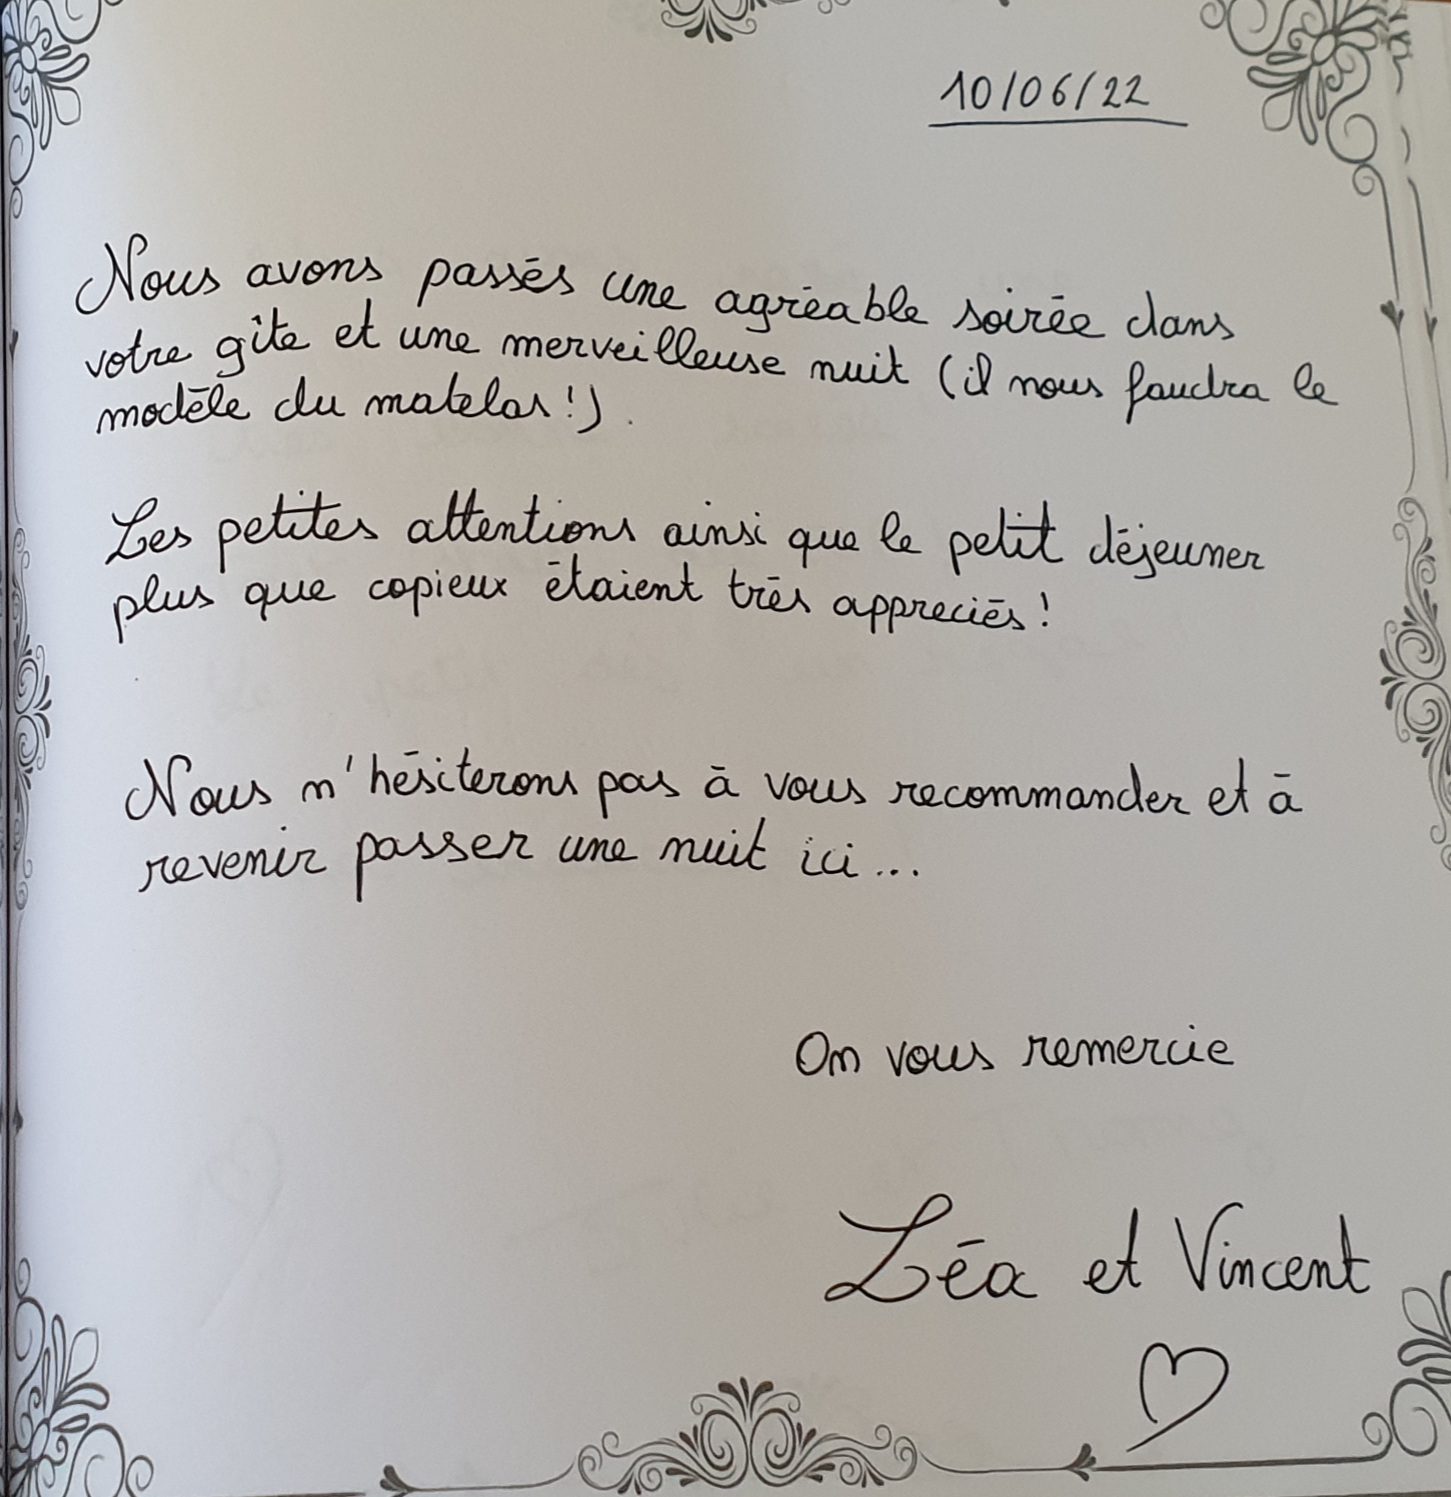 10/06/22
Nous avons passés une agréable soirée dans
votre gîte et une merveilleuse nuit (il nous faudra le
modèle du matelas!).
Les petites attentions ainsi que le petit déjeuner
plus que copieux étaient très appreciés!
Nous n'hésiterons pas à vous recommander et à
revenir passer une nuit ici...
On vous remercie
Léa et Vincent